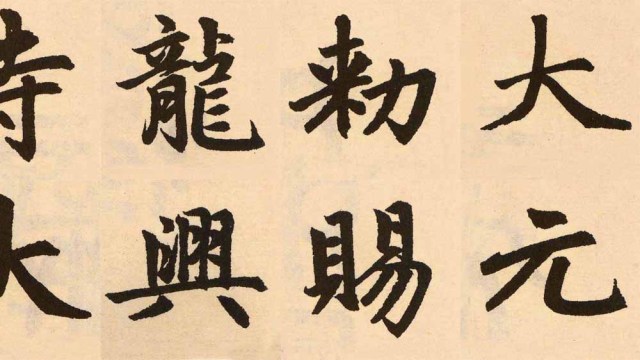 大元
勑賜
龍興
寺大